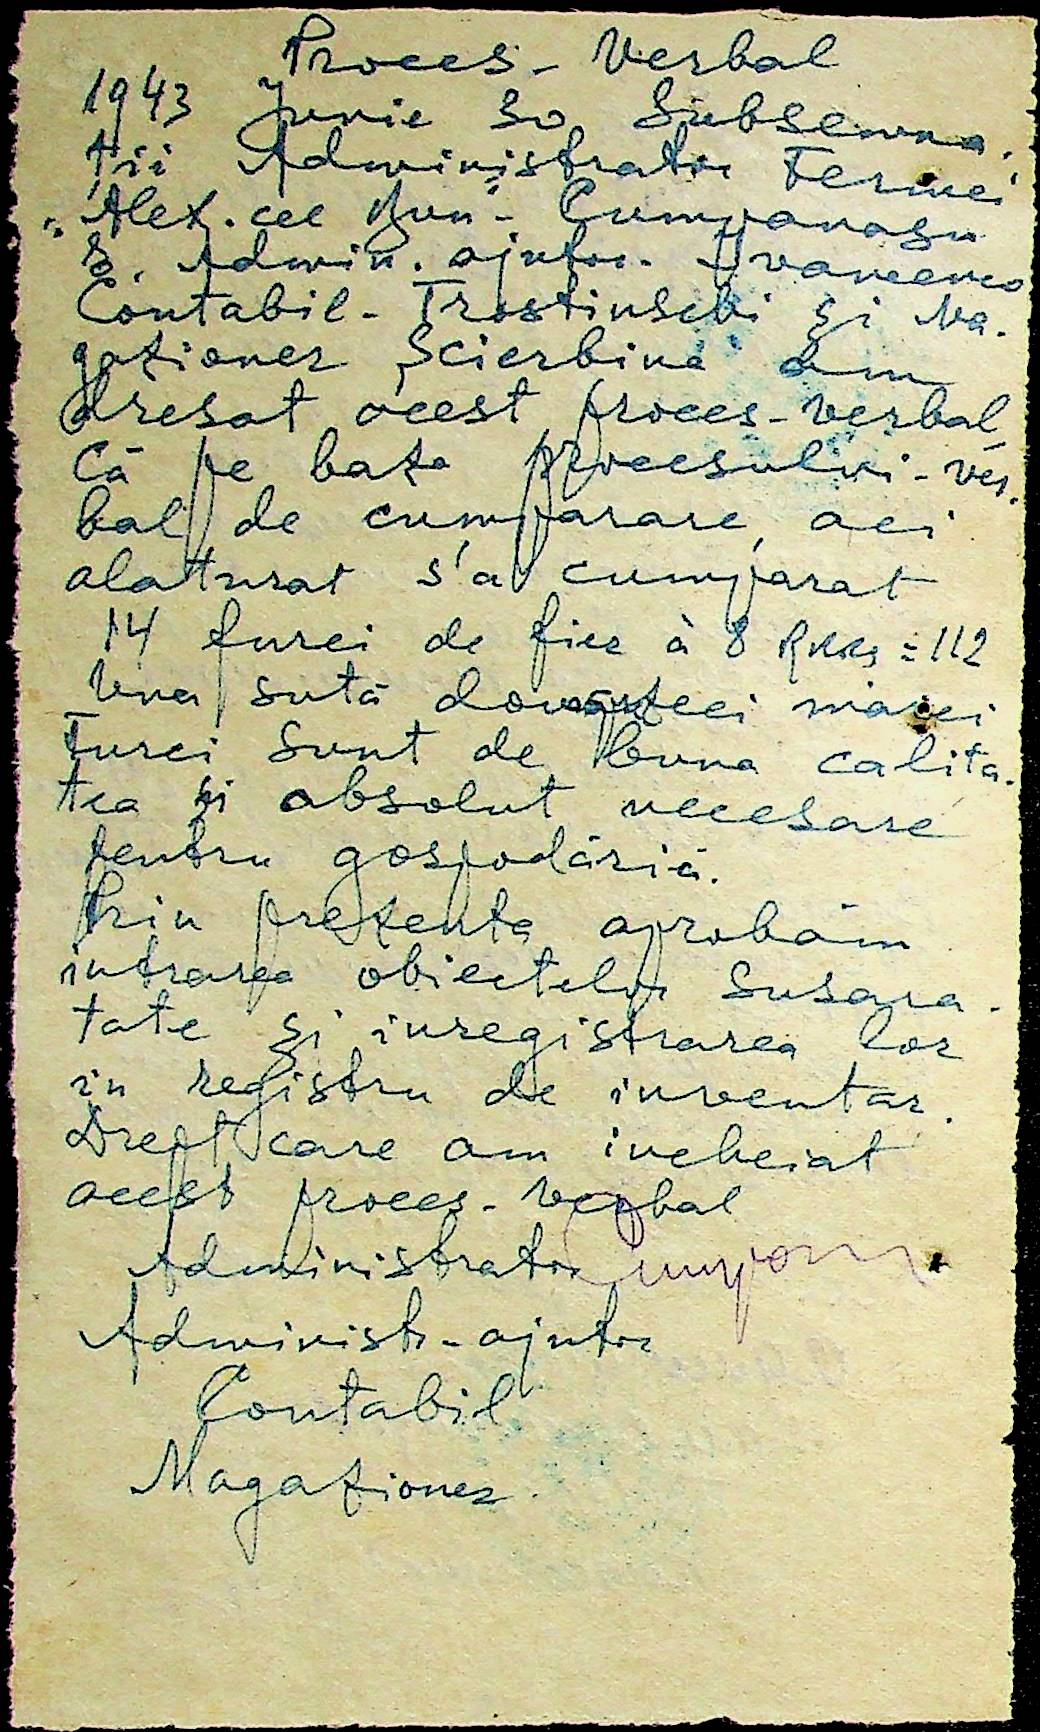 Proces - Verbal
1943 Junie 30 Subsemna.
ţii Administrator Fermei
„Alex. cel Bun" - Cumpanasu
S. Admin. ajutor - Ivaneenco
Contabil - Trostinschi şi Ma.
gazioner Şcierbină am
dresat acest proces-verbal,
Că pe baza procesului-ver.
bal de cumparare, aci
alaturat s'a cumparat
14 furci de fier à 8 RKKs = 112
Una sută douăsprezeci mărci
Furci sunt de buna calita.
tea şi absolut necesare
pentru gospodăriă.
Prin prezenta aprobăm
intrarea obiectelor susara -
tate şi inregistrarea lor
in registru de inventar.
Drept care am incheiat
acest proces-verbal
Administrator
Administr-ajutor
Contabil
Magazioner